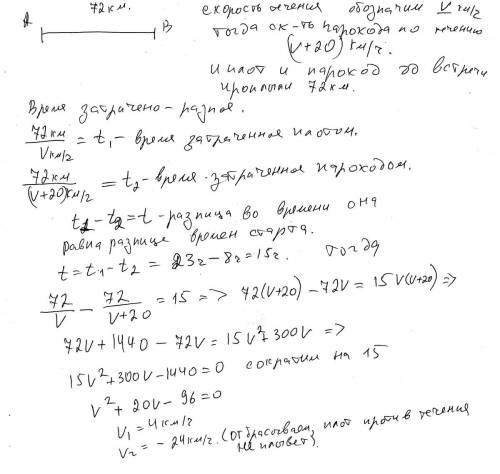 72 км.
A B
скорость течения обозначим V км/ч
тогда ск-ть парохода по течению
(V+20) км/ч.
и плот и пароход до встречи
проплыли 72 км.
Время затрачено - разное.
72 км / V км/ч = t₁ - время затраченное плотом.
72 км / (V+20) км/ч = t₂ - время затраченное пароходом.
t₁ - t₂ = t - разница во времени она
равна разнице времен старта.
t = t₁ - t₂ = 23ч - 8ч = 15ч. тогда
72/V - 72/(V+20) = 15 => 72(V+20) - 72V = 15V(V+20) =>
72V + 1440 - 72V = 15V² + 300V =>
15V² + 300V - 1440 = 0 сократим на 15
V² + 20V - 96 = 0
V₁ = 4 км/ч
V₂ = - 24 км/ч. (отбрасываем, плот против течения
не плывет).